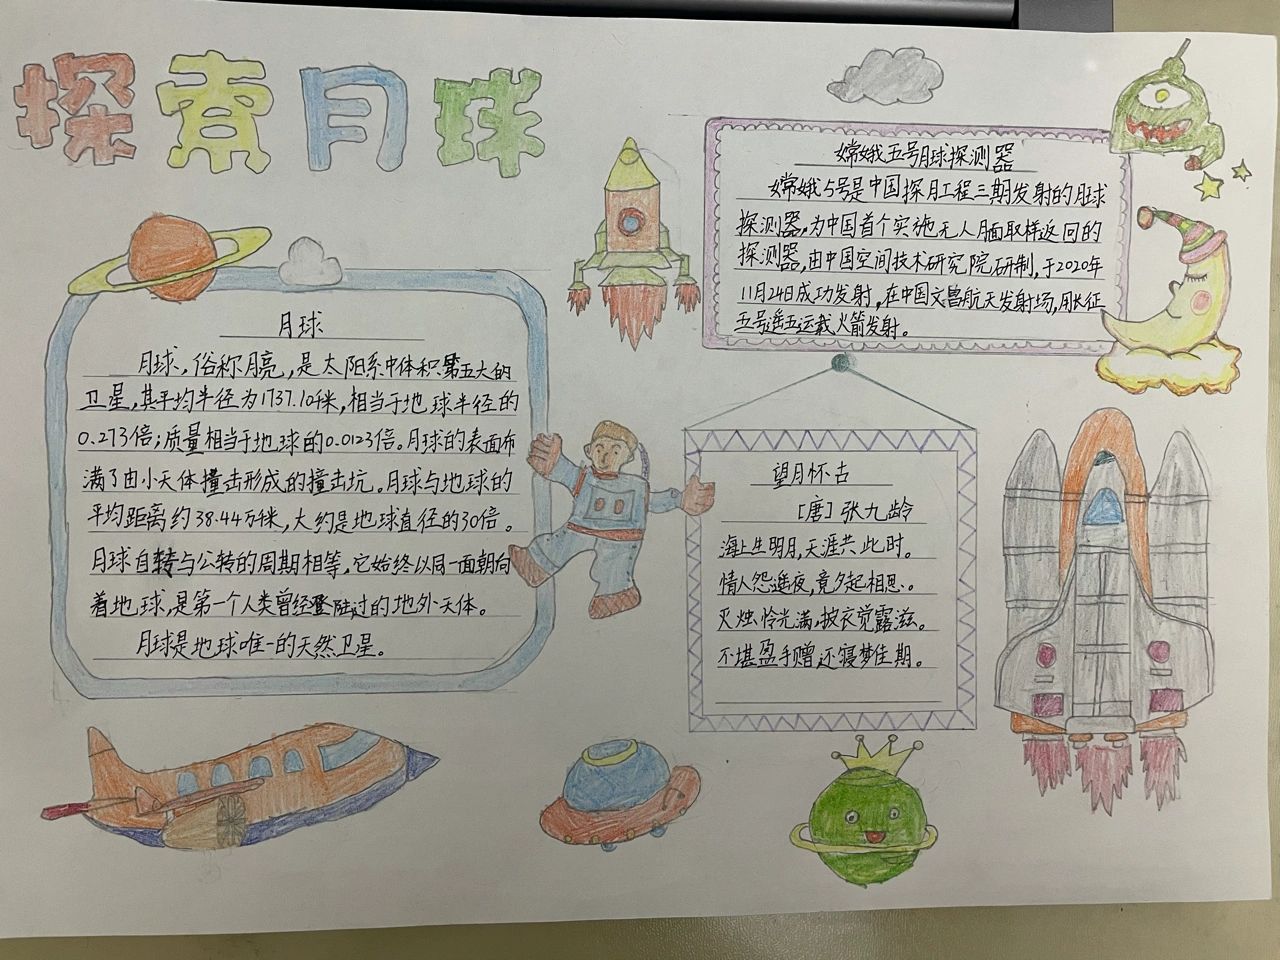 探索月球
月球
月球，俗称月亮，是太阳系中体积第五大的
卫星，其平均半径为1737.10千米，相当于地球半径的
0.273倍；质量相当于地球的0.0123倍。月球的表面布
满了由小天体撞击形成的撞击坑。月球与地球的
平均距离约38.44万千米，大约是地球直径的30倍。
月球自转与公转的周期相等，它始终以同一面朝向
着地球，是第一个人类曾经登陆过的地外天体。
月球是地球唯一的天然卫星。
嫦娥五号月球探测器
嫦娥5号是中国探月工程三期发射的月球
探测器，为中国首个实施无人月面取样返回的
探测器，由中国空间技术研究院研制，于2020年
11月24日成功发射，在中国文昌航天发射场，用长征
五号遥五运载火箭发射。
望月怀古
［唐］张九龄
海上生明月，天涯共此时。
情人怨遥夜，竟夕起相思。
灭烛怜光满，披衣觉露滋。
不堪盈手赠还寝梦佳期。